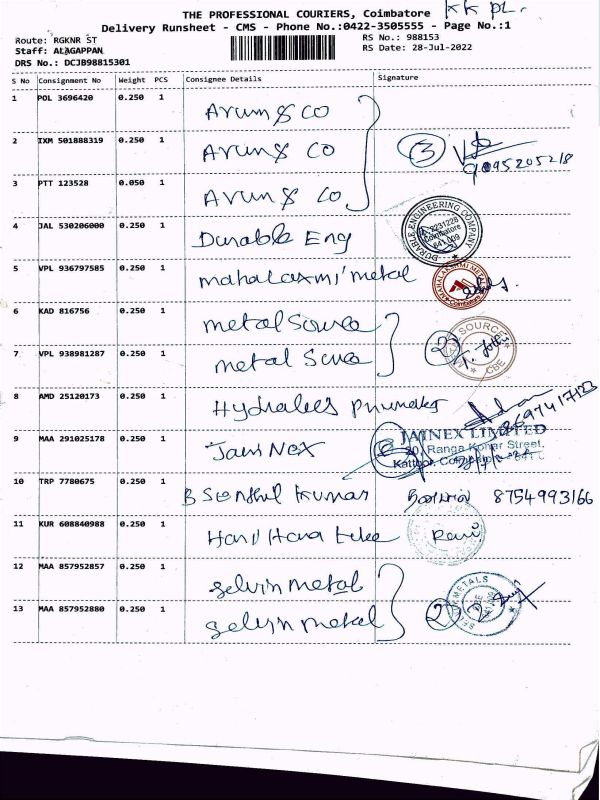 THE PROFESSIONAL COURIERS, Coimbatore KK PL.
Delivery Runsheet - CMS - Phone No.:0422-3505555 - Page No.:1
Route: RGKNR ST
RS No.: 988153
Staff: ALAGAPPAN
RS Date: 28-Jul-2022
DRS No.: DCJB98815301
S No Consignment No Weight PCS Consignee Details Signature
1 POL 3696420 0.250 1 Arun & CO
2 IXM 501888319 0.250 1 Arun & CO 3
3 PTT 123528 0.050 1 Arun & Co
4 JAL 530206000 0.250 1 Durable Eng DURABLE ENGINEERING COMPANY Coimbatore
5 VPL 936797585 0.250 1 mahalaxmi metal MAHALAKSHMI METAL Coimbatore
6 KAD 816756 0.250 1 metal Source 2 SOURCE CBE
7 VPL 938981287 0.250 1 metal
8 AMD 25120173 0.250 1
9 MAA 291025178 0.250 1 Jain Nex JAINEX LIMITED
Ranga Konar Street,
Kattoor,
10 TRP 7780675 0.250 1 B Senthil Kumar 8754993166
11 KUR 608840988 0.250 1 Ravi
12 MAA 857952857 0.250 1 Selvin metal METALS
13 MAA 857952880 0.250 1 Selvin metal 2